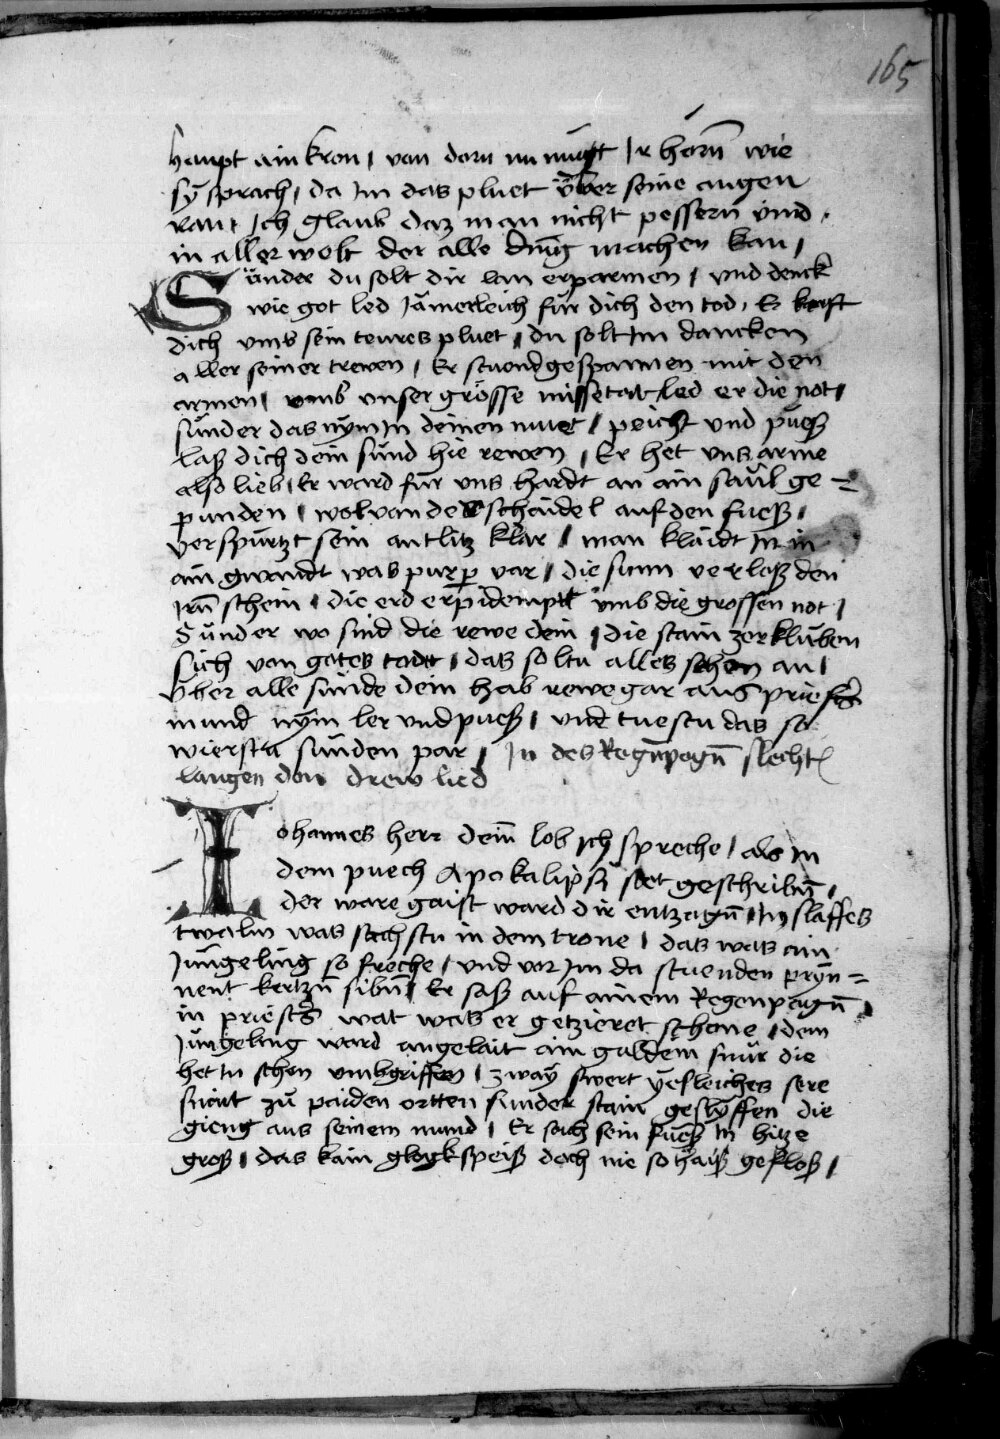 165
haupt ain kron / von dorn nu mugt Ir hörn̄ wie
sÿ sprach / da Im das pluet über seine augen
ran / Ich glaub daz man nicht pessern̄ vind /
in aller welt der alle ding machen kan /
Sünder du solt dir lan erparmen / vnd denck
wie got led Jämerleich für dich den tod / Er kauft
dich vmb sein teures pluet / du solt Im dancken
aller seiner trewen / Er stuend gespannen mit den
armen / vmb vnser grösse missetat led er die not /
sünder das nÿm In deinen muet / peicht vnd puess
lass dich dein sünd hie rewen / Er het vns arme
also lieb / Er ward für vns hardt an ain saul ge =
punden / wol von der schaidel auf den fuess /
verspürtzt sein antlitz klar / man klaidt In in
ain gwandt was purp var / die sunn verlass den
Irn̄ schein / die erd erpidempt vmb die grossen not /
Sünder wo sind die rewe dein / die stain zerkluben
sich von gotes todt / das soltu alles sehen an /
Vber alle sünde dein hab rewe gar aus priesters
mund nÿm ler vnd puess / vnd tuestu das so
wierstu sünden par / In des Regn̄pogn̄ slecht
langen don drew lied
Iohannes herr dein̄ lob Ich spreche / als in
dem puech Apokalipsi stet geschribn̄ /
der ware gaist ward dir entzagn̄ / Im slaffes
twalm was sach stu in dem trone / das was ain
Jüngeling so freche / vnd vor Im da stuenden prÿn =
nent kertzn̄ sibn̄ / Er sass auf ainem Regenpogn̄ /
in priesters wat was er getzieret schone / dem
Jüngeling ward angelait ain guldein snür die
het In schon vmbgriffen / zway swert geleiches sere
snient zü paiden ortten sunder stain geslÿffen die
gieng aus seinem mund / Er sach sein füess In hitze
gross / das kain glogkspeiss doch nie so haiss gefloss /